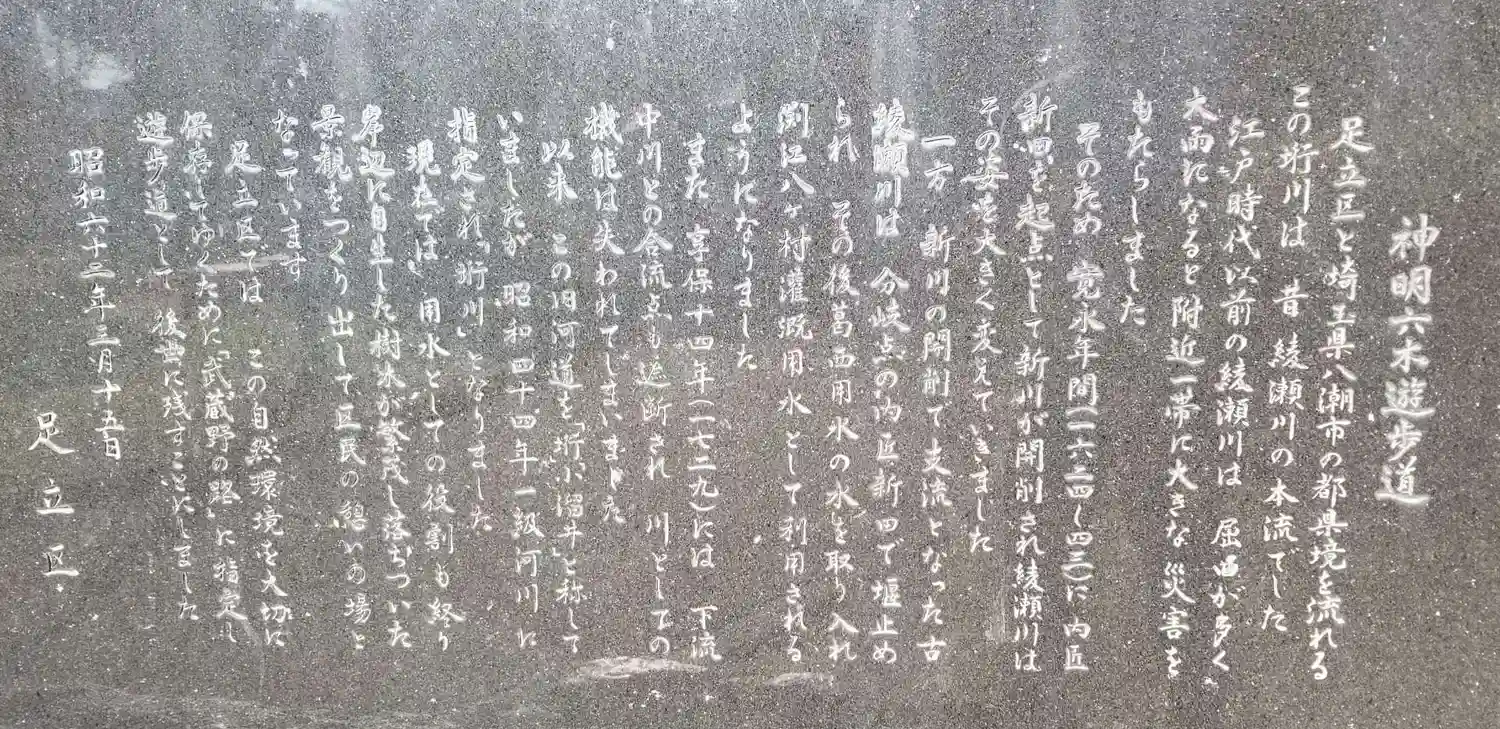 神明六木遊歩道
足立区と埼玉県八潮市の都県境を流れる
この垳川は 昔 綾瀬川の本流でした
江戸時代以前の綾瀬川は 屈曲が多く
大雨になると附近一帯に大きな災害を
もたらしました
そのため 寛永年間(一六二四〜四三)に内匠
新田を起点として新川が開削され綾瀬川は
その姿を大きく変えていきました
一方 新川の開削で支流となった古
綾瀬川は 分岐点の内匠新田で堰止め
られ その後葛西用水の水を取り入れ
渕江八ヶ村灌漑用水として利用される
ようになりました
また 享保十四年(一七二九)には 下流
中川との合流点も遮断され 川としての
機能は失われてしまいました
以来 この旧河道を「垳溜井」と称して
いましたが 昭和四十四年一級河川に
指定され「垳川」となりました
現在では 用水としての役割も終り
岸辺に自生した樹木が繁茂し落ちついた
景観をつくり出して区民の憩いの場と
なっています
足立区では この自然環境を大切に
保存してゆくために「武蔵野の路」に指定し
遊歩道として 後世に残すことにしました
昭和六十三年三月十五日
足立区